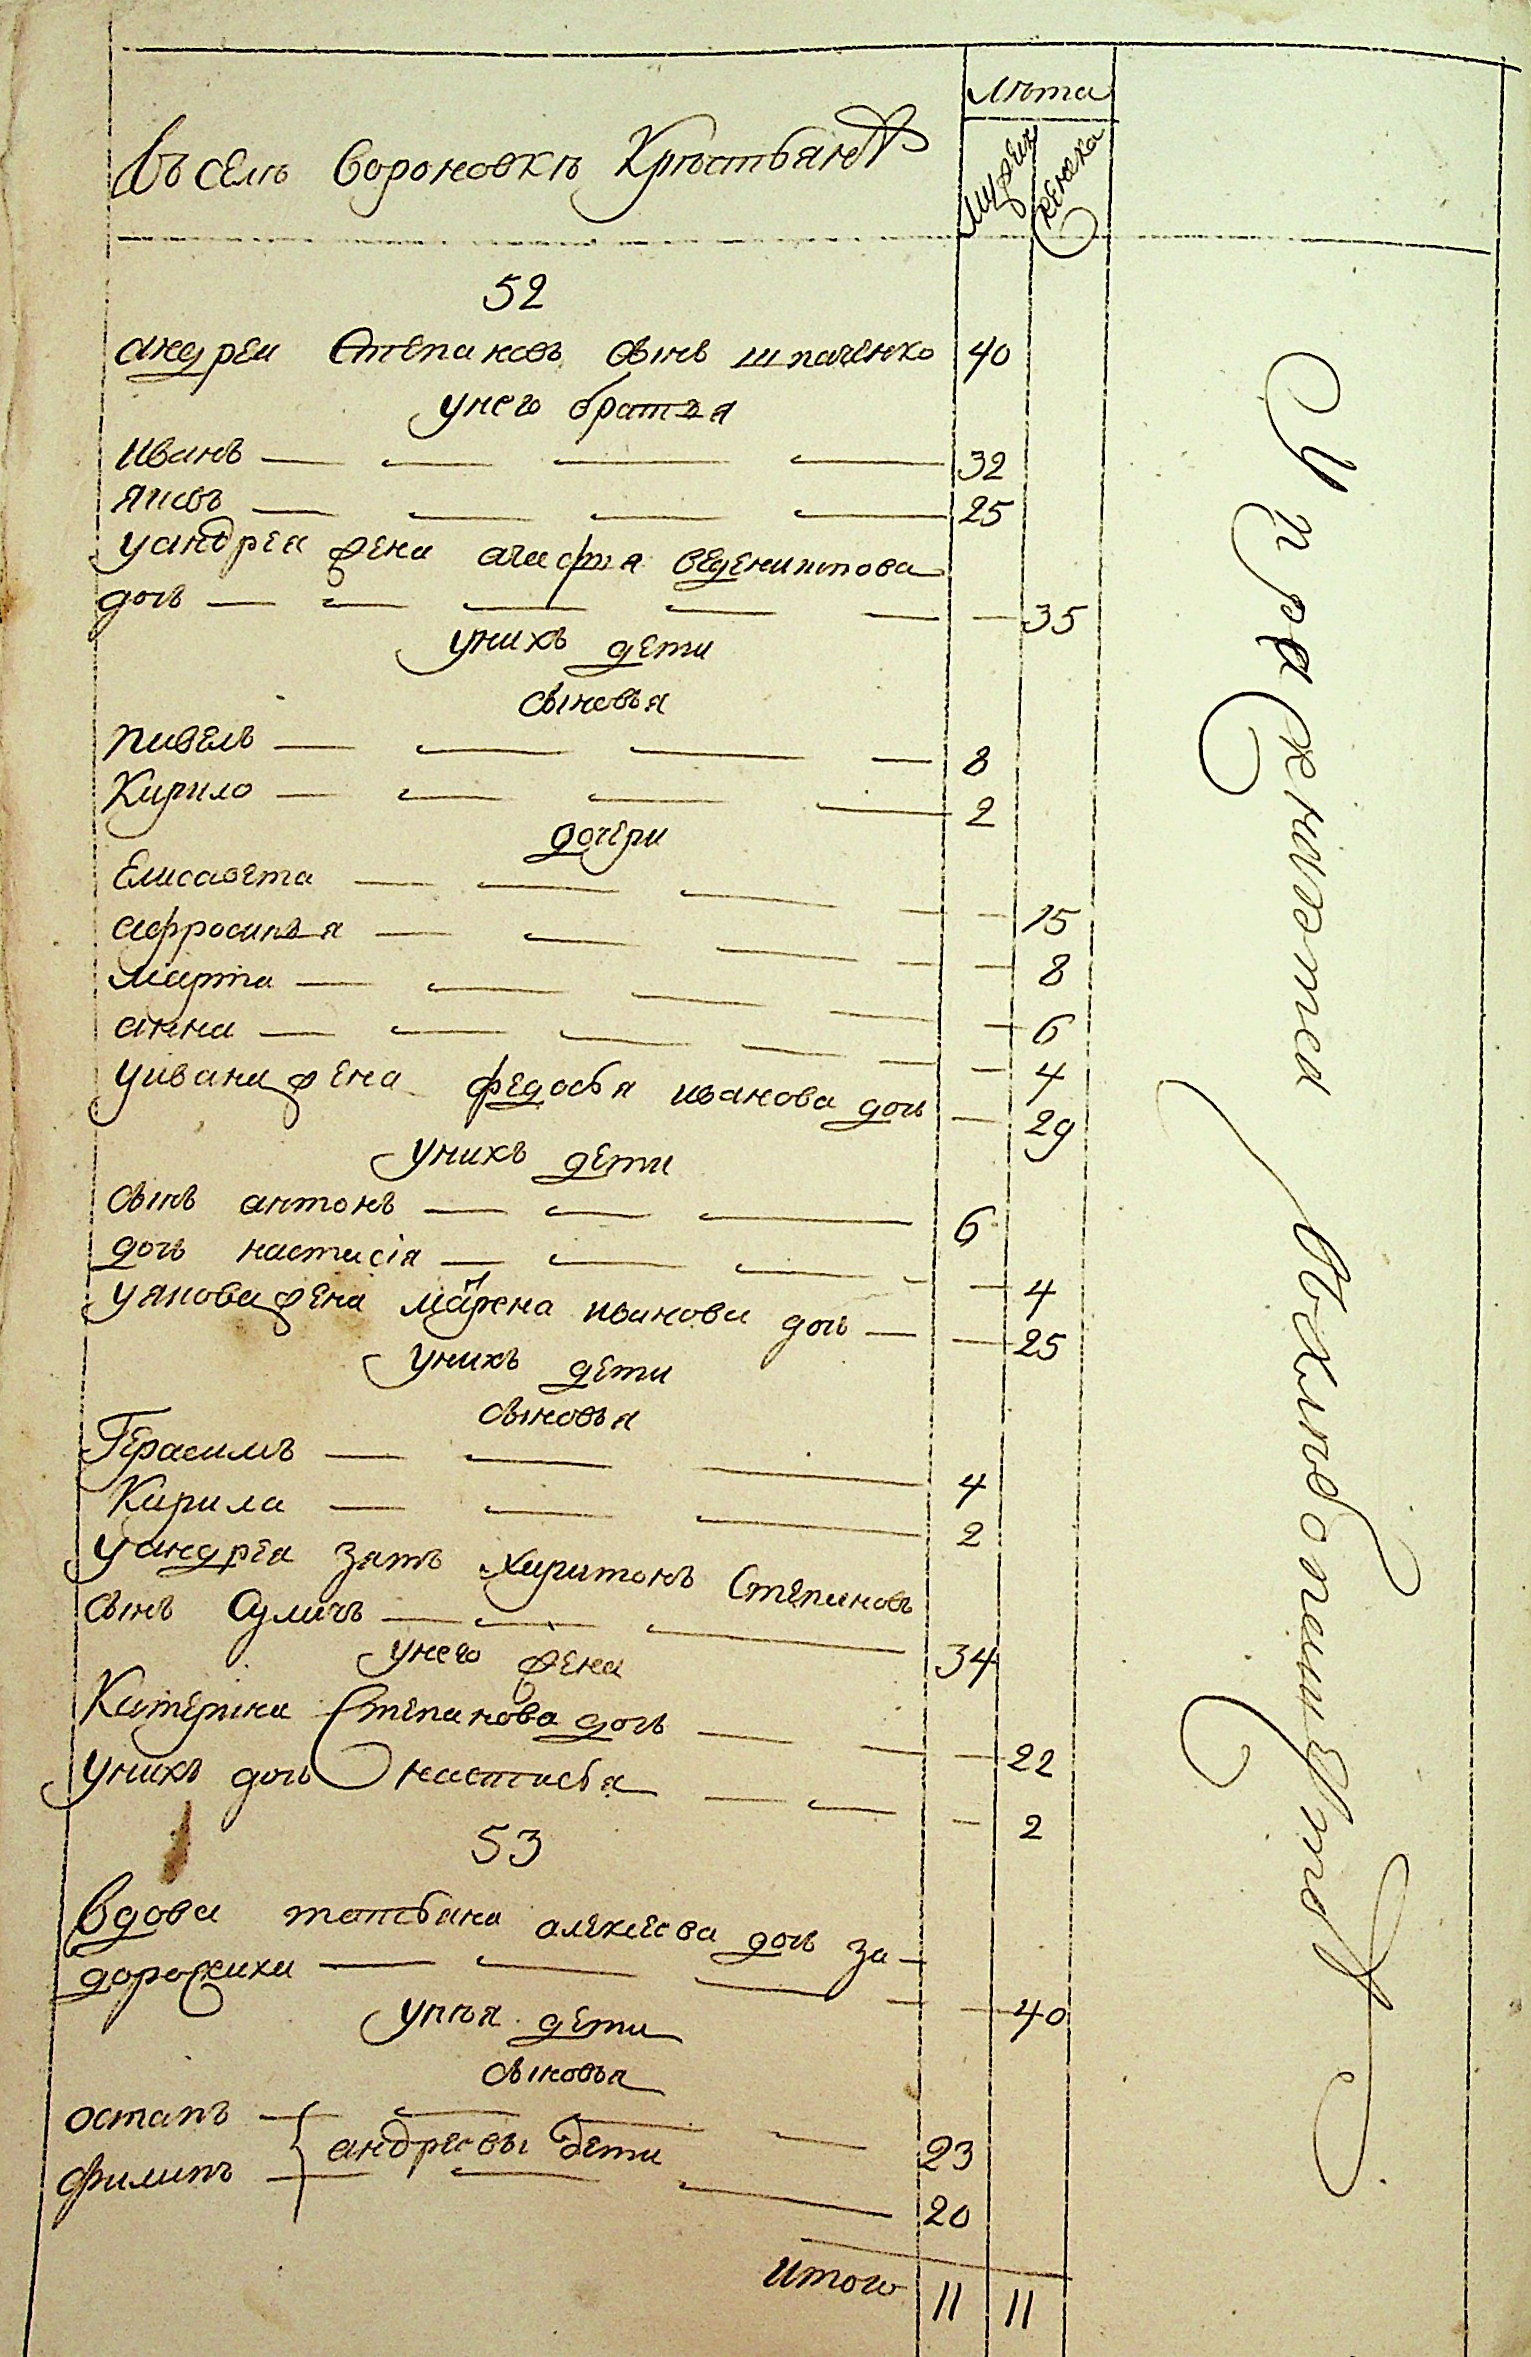 лѣта
въ селѣ вороновкѣ Крѣстьянъ
мужеи
женска
52
андреи Степановъ сынъ шпаченко 40
унего братья
Иванъ 32
яковъ 25
уандрея жена агафия веденихтова
дочь 35
унихъ дети
сыновья
павелъ 8
Кирило 2
дочери
Елисавета 15
афросинья 8
марта 6
анна 4
уивана жена федосья иванова дочь 29
унихъ дети
сынъ антонъ 6
дочь настасія 4
уякова жена марена иванова дочь 25
унихъ дети
сыновья
Герасимъ 4
Кирила 2
уандрея зать харитонъ Степановъ
сынъ Сулимъ 34
унего жена
Катерина Степанова дочь 22
унихъ дочь настасья 2
53
вдова татьяна алексеева дочь за
дорожиха 40
унѣя дети
сыновья
остапъ 23
андреевы дети
филипъ 20
итого 11 11
Упражняется въхлѣбопашествѣ